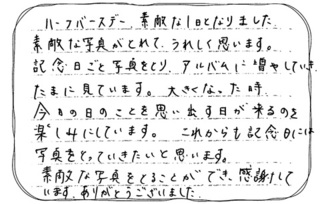 ハーフバースデー、素敵な1日となりました。
素敵な写真がとれて、うれしく思います。
記念日ごと写真をとり、アルバムに増やしていき、
たまに見ています。大きくなった時
今日の日のことを思い出す日が来るのを
楽しみにしています。これからも記念日には
写真をとっていきたいと思います。
素敵な写真をとることができ、感謝して
います。ありがとうございました。